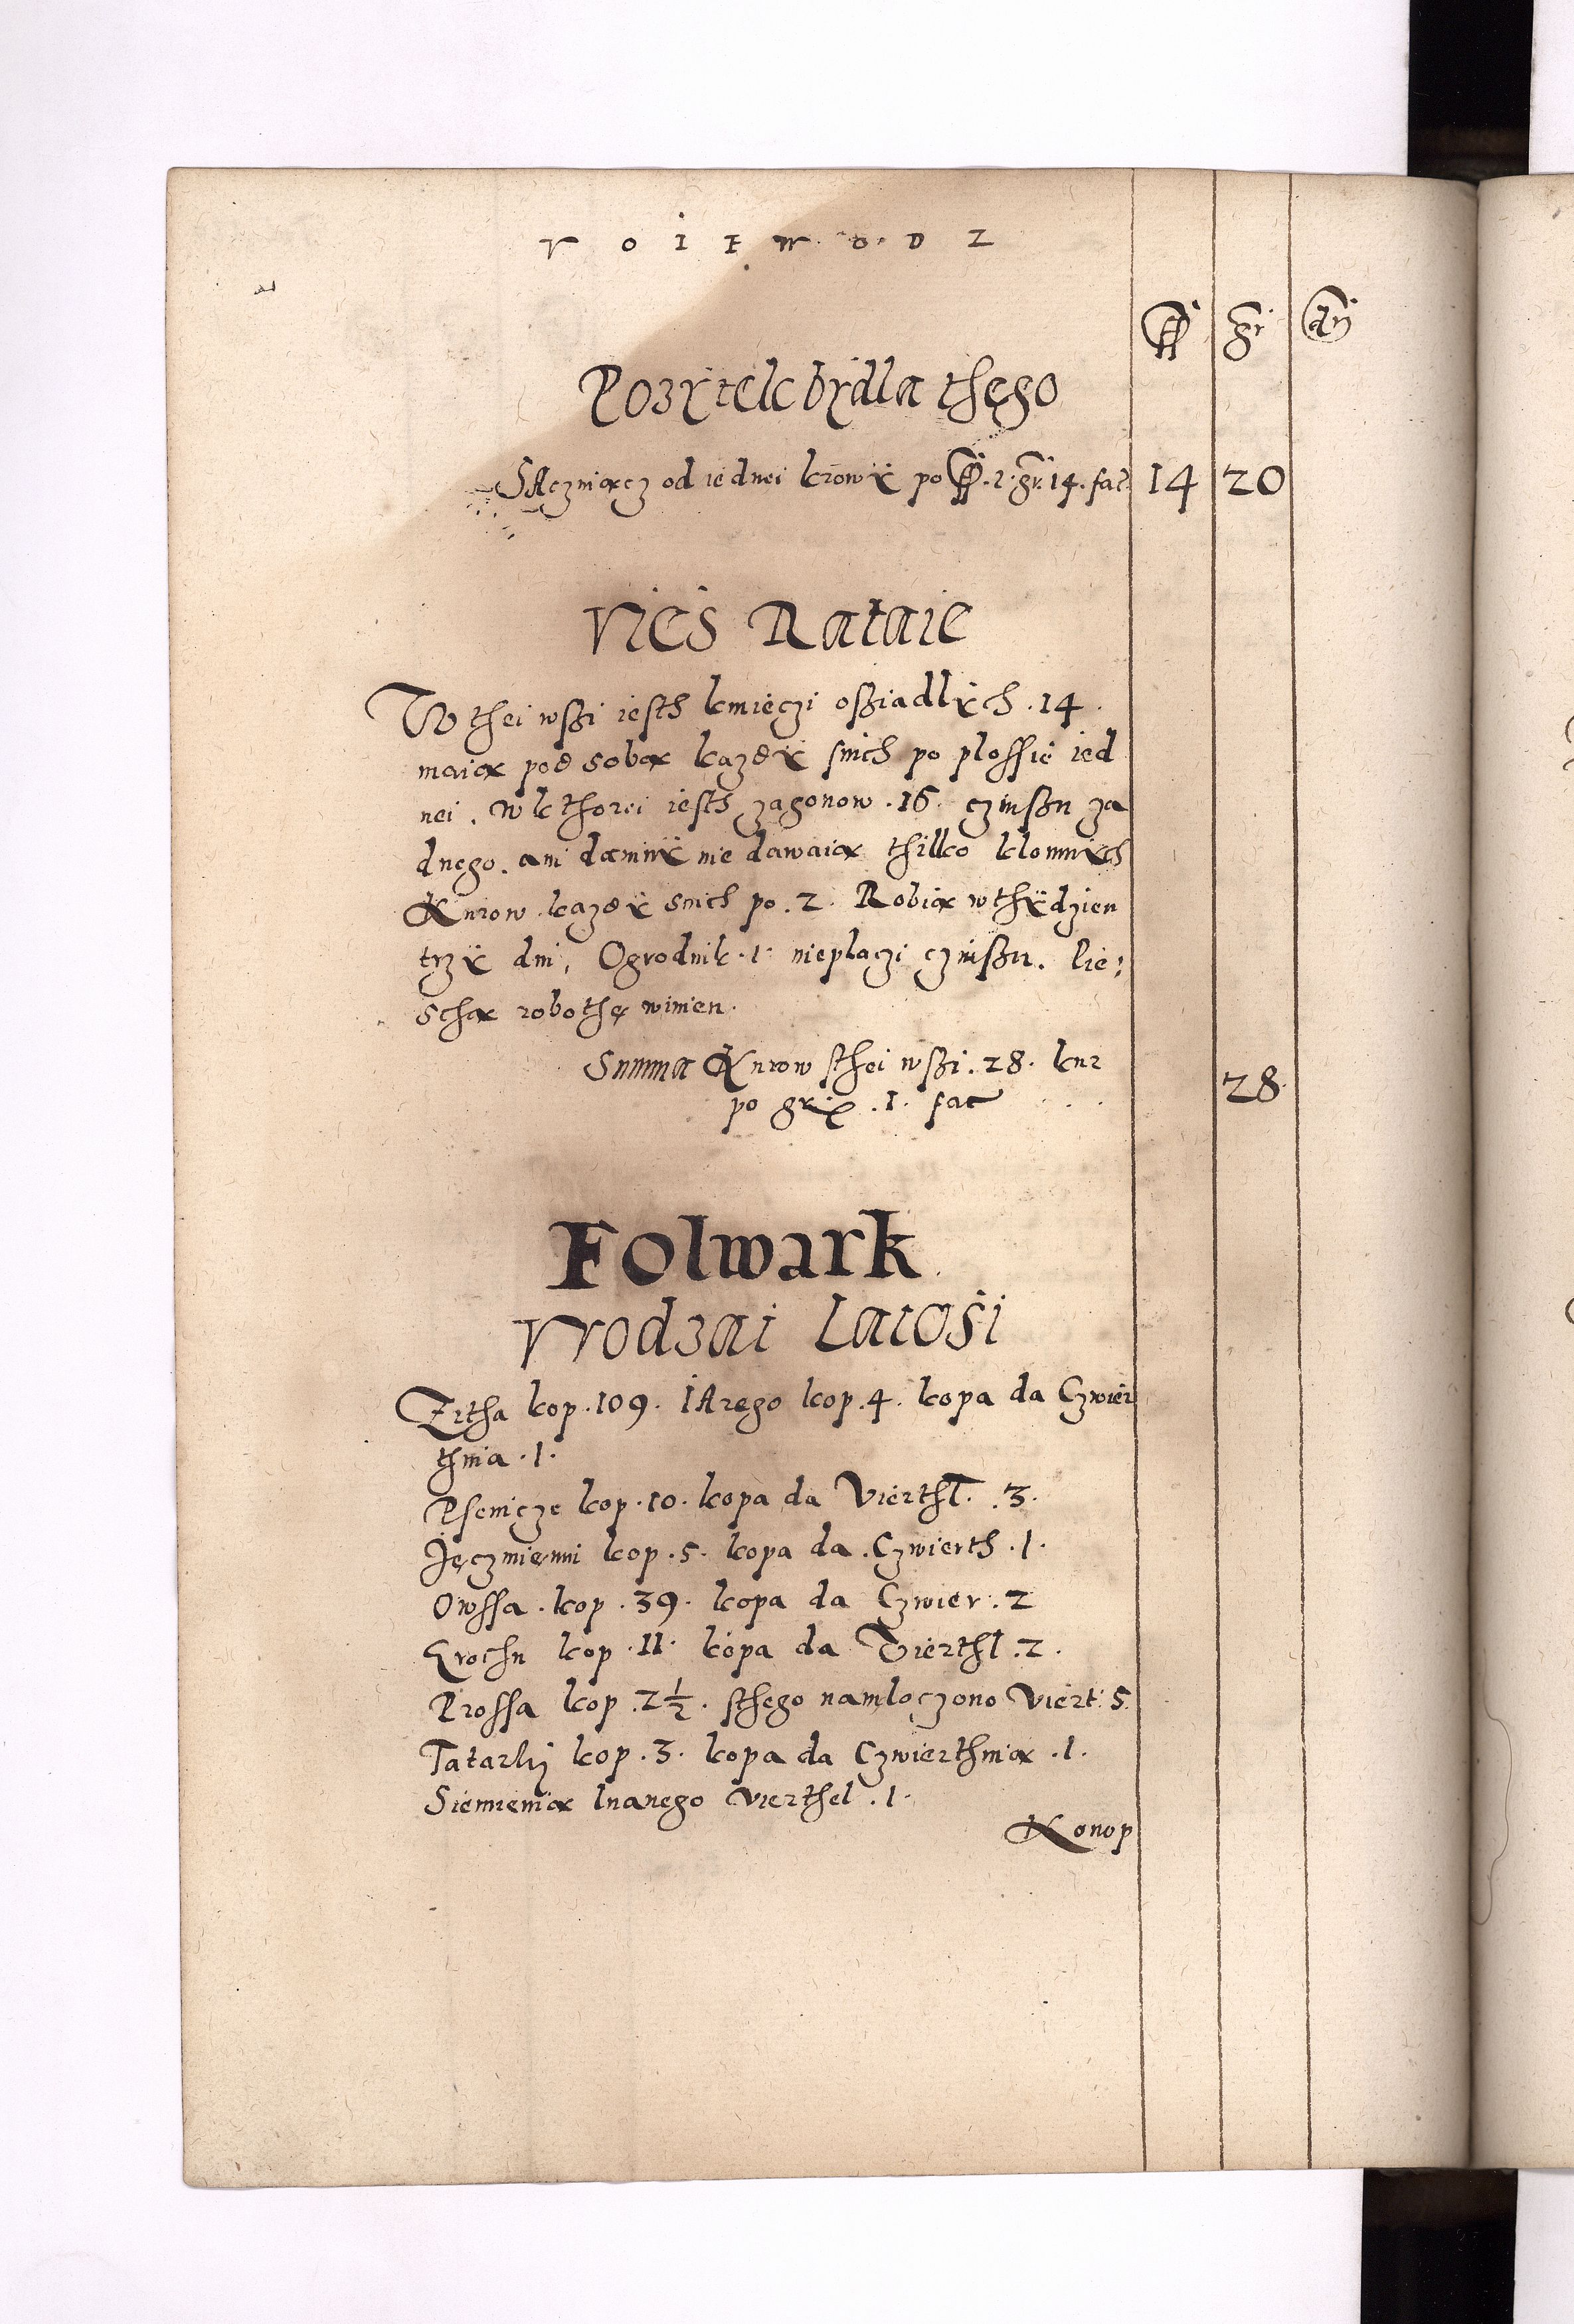 V O I E W O D Z
fl gr dn
Pozÿtek bÿdla thego
SAczniącz od iednei krowÿ po fl. 1. gr. 14. fac. 14 20
Vieś Rataie
W thei wßi iesth kmieczi oßiadlÿch .14.
maią pod sobą kazdÿ snich po plossie ied
nei. w kthorei iesth zagonow .16. czinßu za
dnego. ani daninÿ nie dawaią thilko klonnÿch
Kurow kazdÿ snich po .2. Robią w thÿdzien
trzÿ dni, Ogrodnik .1. nieplaczi czinßu. Pie:
schą robothę winien.
Summa Kurow sthei wßi .28. kur
po gr .1. fac 28.
Folwark
Vrodzai Latosi
Zrtha kop .109. IArego kop .4. kopa da Czwier
thnia .1.
Psenicze kop .10. kopa da Vierthl. .3.
Jęczmienni kop .5. kopa da Czwierth .1.
Owssa kop .39. kopa da Czwier .2
Grochu kop .11. kopa da Vierthl .2.
Prossa kop .2½. sthego namloczono Viert: 5.
Tatarki kop .3. kopa da Czwierthnią .1.
Siemienią lnanego vierthel .1.
Konop